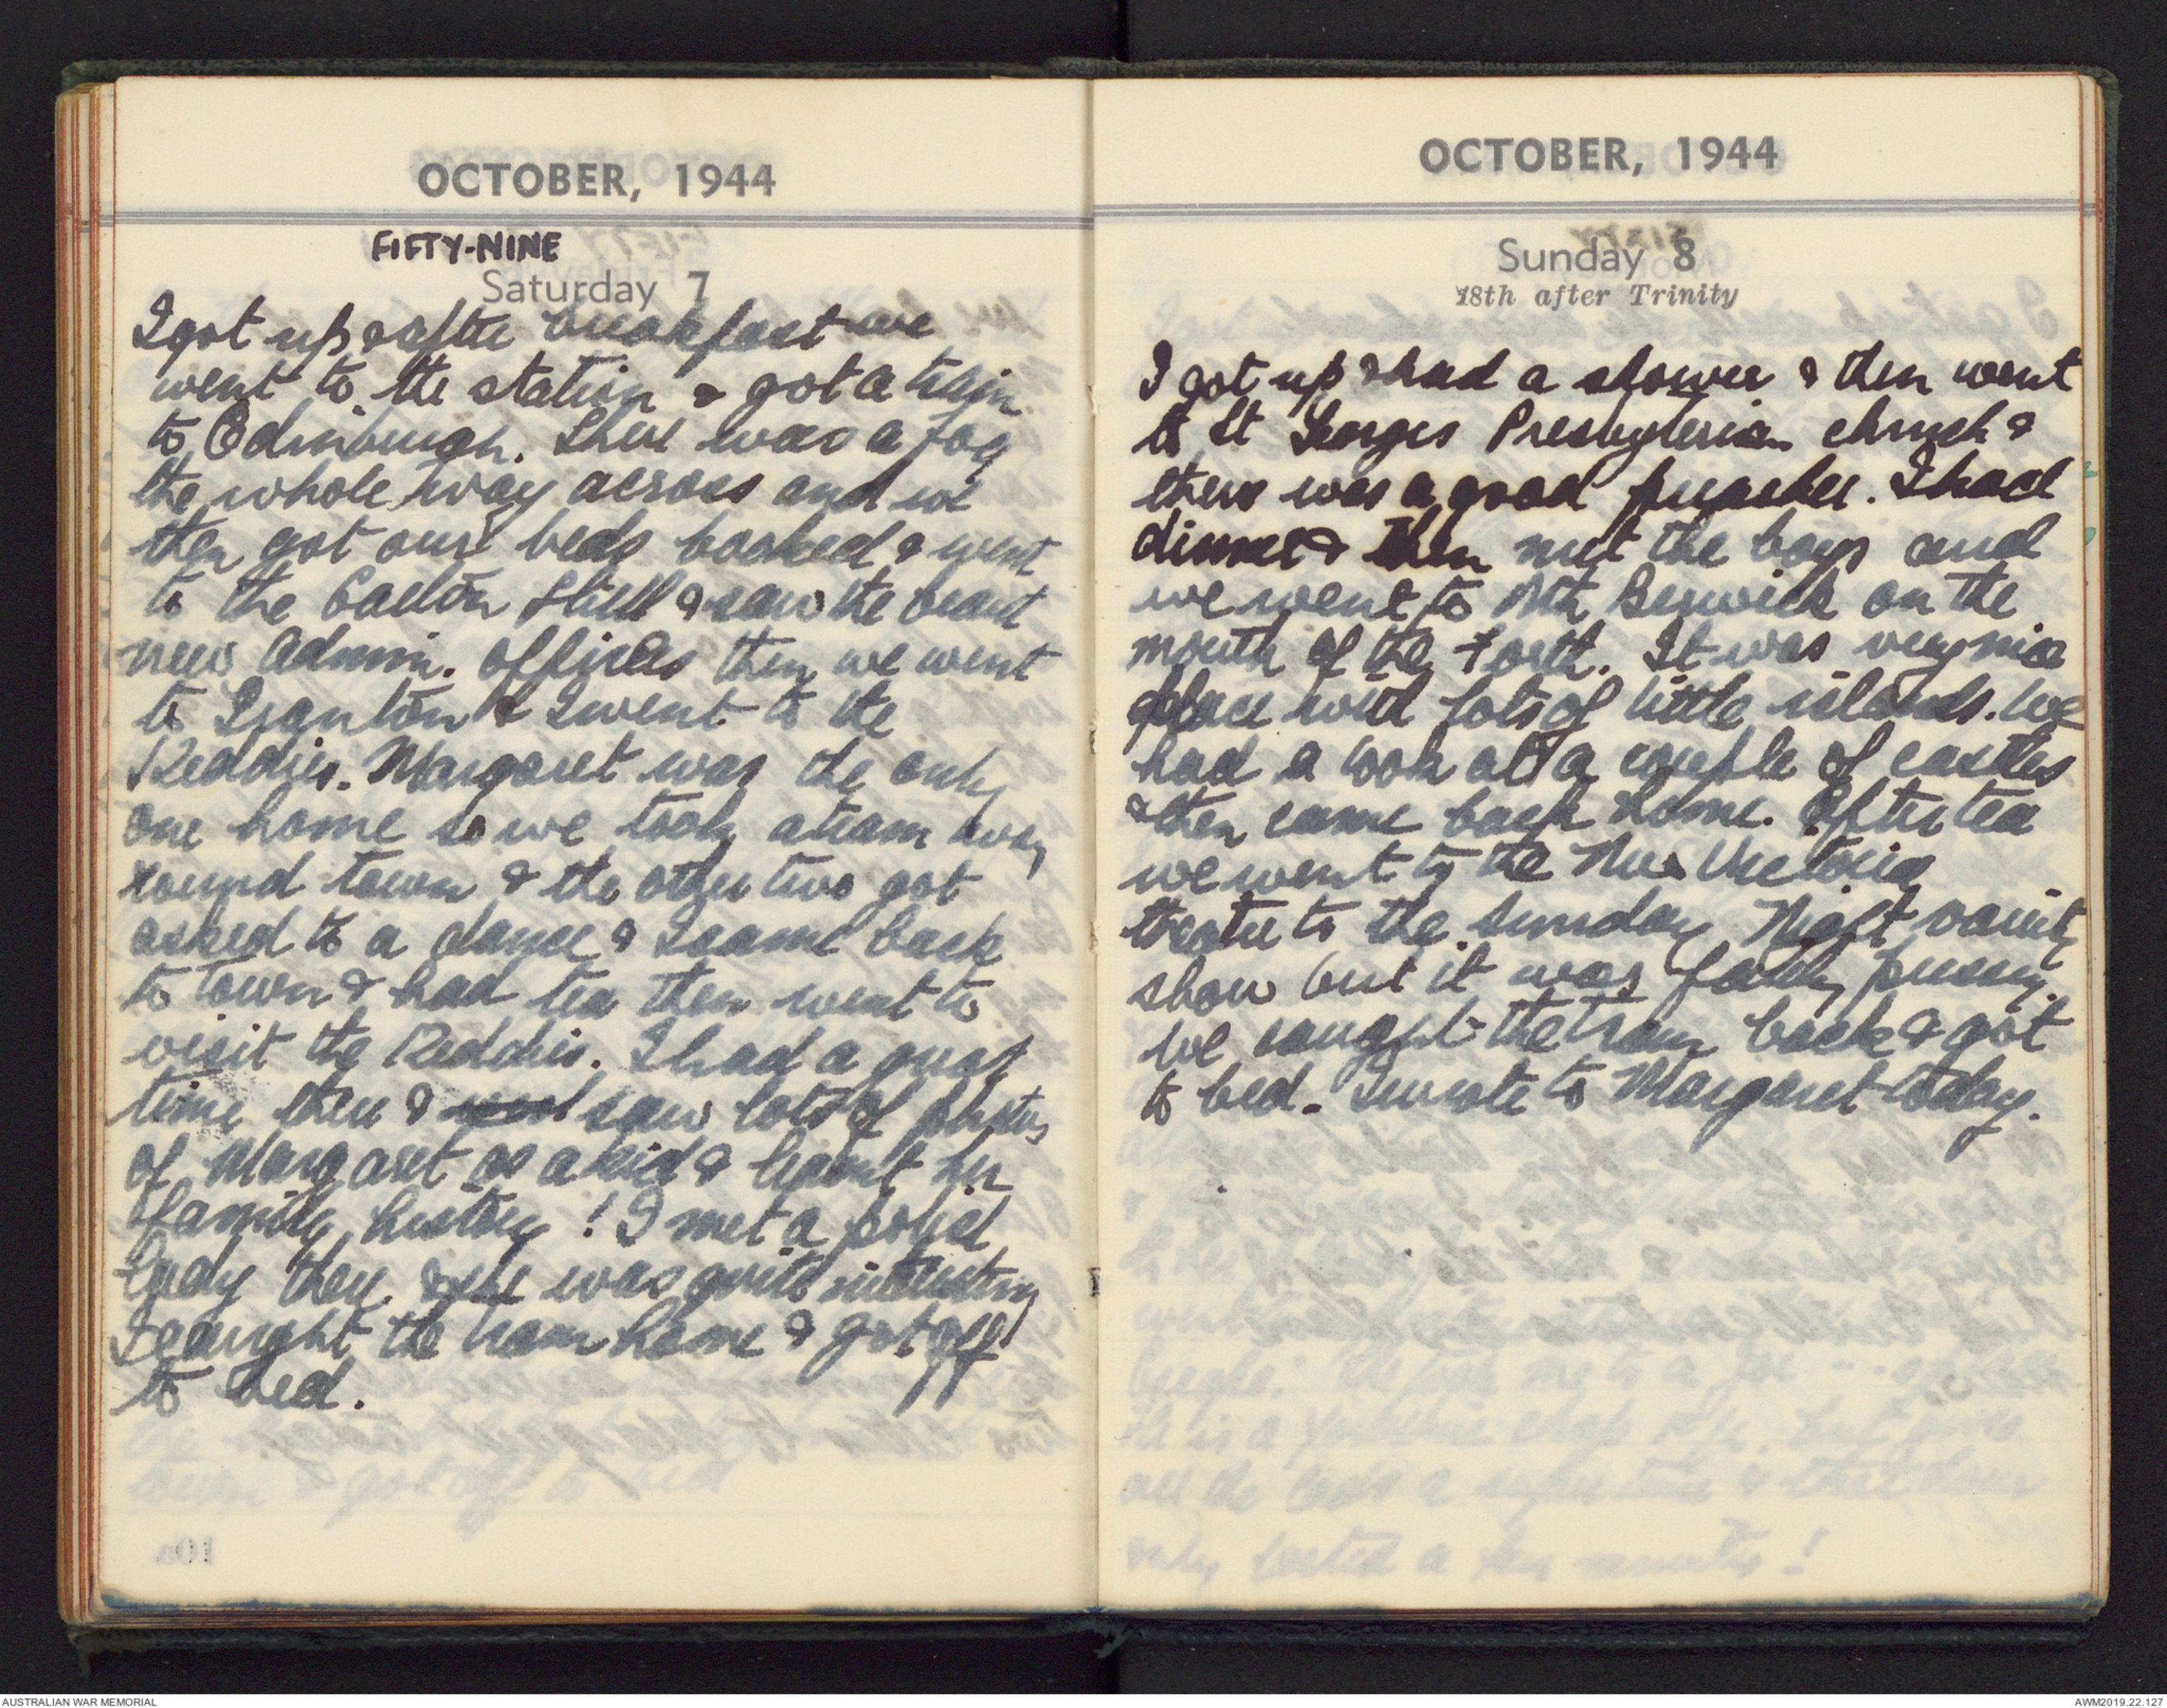 OCTOBER, 1944
FIFTY-NINE
Saturday 7
I got up & after breakfast we
went to the station & got a train
to Edinburgh. There was a fog
the whole way across and we
then got our beds booked & went
to the Carlton Hill & saw the beaut
new Admin. offices then we went
to Granton & I went to the
Reddies. Margaret was the only
one home so we took a tram way
round town & the other two got
asked to a dance & I came back
to town & had tea then went to
visit the Reddies. I had a great
time there & saw lots of photos
of Margaret as a kid & learnt her
family history! I met a
lady there & she was quite interesting
I caught the tram home & got off
to bed.
OCTOBER, 1944
Sunday 8
18th after Trinity
I got up & had a shower & then went
to St Georges Presbyterian church &
there was a good preacher. I had
dinner & then met the boys and
we went to Nth Berwick on the
mouth of the Forth. It was very nice
place with lots of little islands. We
had a look at a couple of castles
& then came back home. After tea
we went to the New Victoria
theatre to the Sunday Night variety
show but it was fairly
We caught the tram back & got
to bed. I wrote to Margaret today.
AUSTRALIAN WAR MEMORIAL
AWM2019.22.127